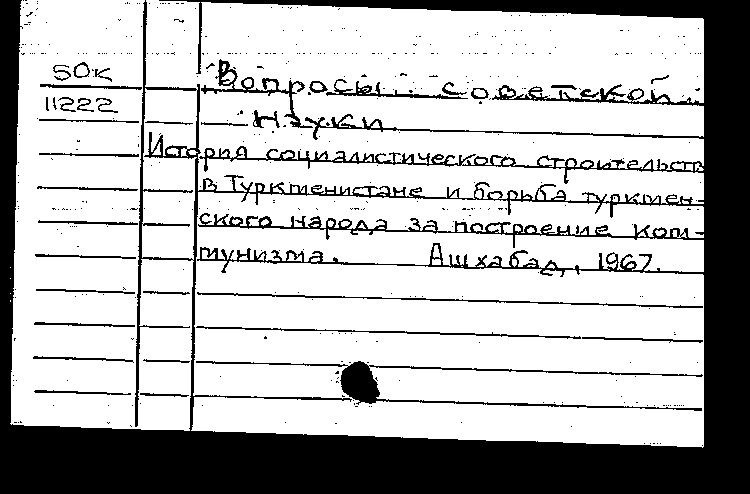 50к
11222
Вопросы советской
науки.
История социалистического строительств
в Туркменистане и борьба туркмен-
ского народа за построение ком-
мунизма. Ашхабад, 1967.